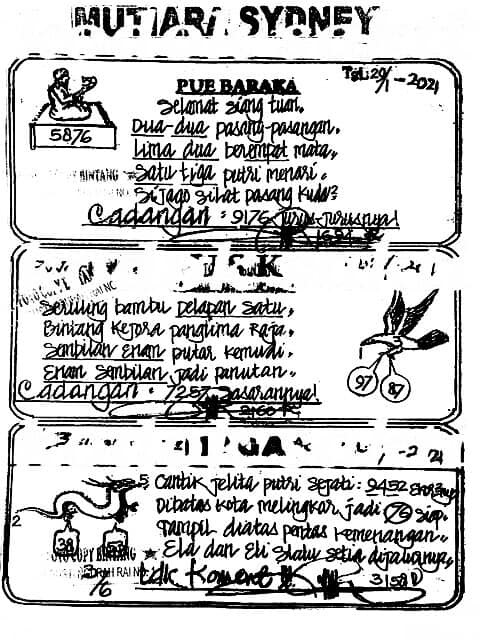 MUTIARA SYDNEY
PUE BARAKA
Tgl: 20/1-2021
5876
Selamat siang tuan,
Dua-dua pasang-pasangan,
Lima dua berempat mata,
Satu tiga putri menari,
Si Jago silat pasang kuda2
BINTANG
Cadangan : 9176 Jurus-Jurusnya!
Seruling bambu Delapan Satu,
Bintang Kejora panglima Raja,
Sembilan Enam putar kemudi,
Enam Sembilan jadi panutan,
Cadangan : 7257 Sasarannya!
2160
97
87
5
Cantik jelita putri sejati : 9452
Dibatas kota melingkar jadi 76 Siap,
Tampil diatas pentas kemenangan,
Ela dan Eli Slalu setia dijalurnya,
2
38
COPY BINTANG
3/6
Koment !!
3158